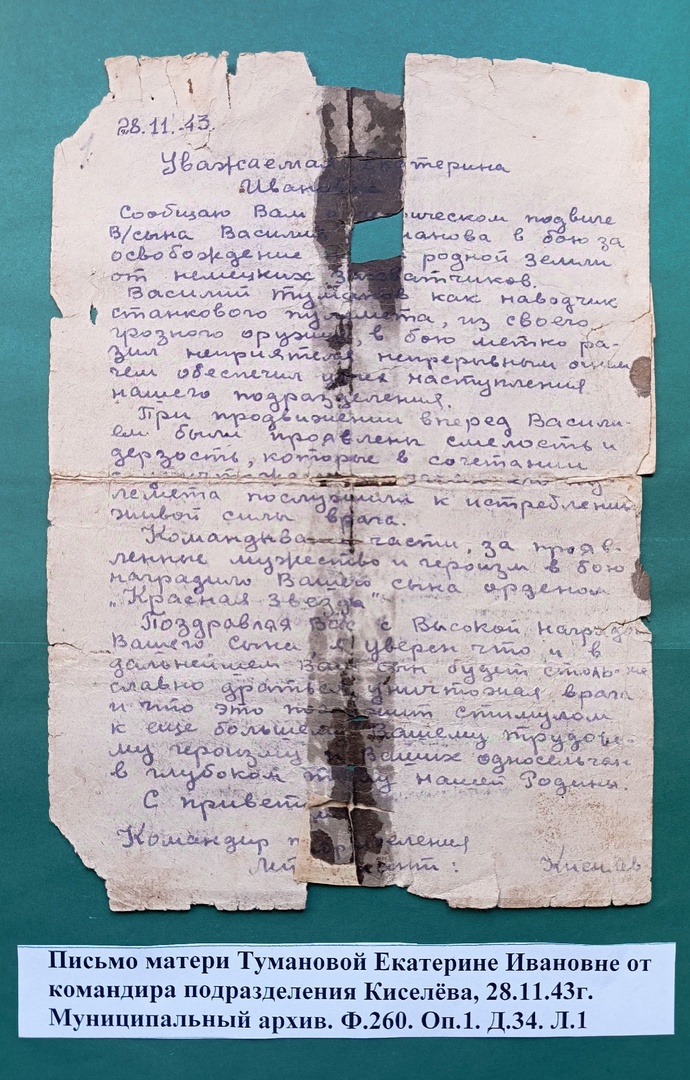 28.11.43.
Уважаемая Екатерина
Ивановна
Сообщаю Вам о подвиге
В/сына Василия в бою за
освобождение родной земли
от немецких захватчиков.
Василий Туманов как наводчик
станкового пулемета, из своего
грозного оружия, в бою метко ра-
зил неприятеля непрерывным огнем
чем обеспечил успех наступления
нашего подразделения.
При продвижении вперед Васили-
ем были проявлены смелость и
дерзость, которые в сочетании
лемета послужили к истреблению
живой силы врага.
Командование части, за прояв-
ленные мужество и героизм в бою
наградило Вашего сына орденом
„Красная звезда"
Поздравляя Вас с Высокой наградой
Вашего сына я уверен что и в
дальнейшем Ваш сын будет столь же
славно драться, уничтожая врага
и что это послужит стимулом
к еще большему Вашему трудово-
му героизму и Ваших односельчан
в глубоком тылу нашей Родины.
С приветом
Командир подразделения
Киселев
Письмо матери Тумановой Екатерине Ивановне от
командира подразделения Киселёва, 28.11.43г.
Муниципальный архив. Ф.260. Оп.1. Д.34. Л.1